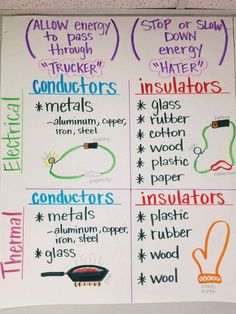 (ALLOW energy
to pass
through)
"TRUCKER"
(STOP or SLOW
DOWN
energy)
"HATER"
Electrical
conductors
* metals
-aluminum, copper,
iron, steel
insulators
* glass
* rubber
* cotton
* wood
* plastic
* paper
Thermal
conductors
* metals
-aluminum, copper,
iron, steel
* glass
insulators
* plastic
* rubber
* wood
* wool
oven
mitt